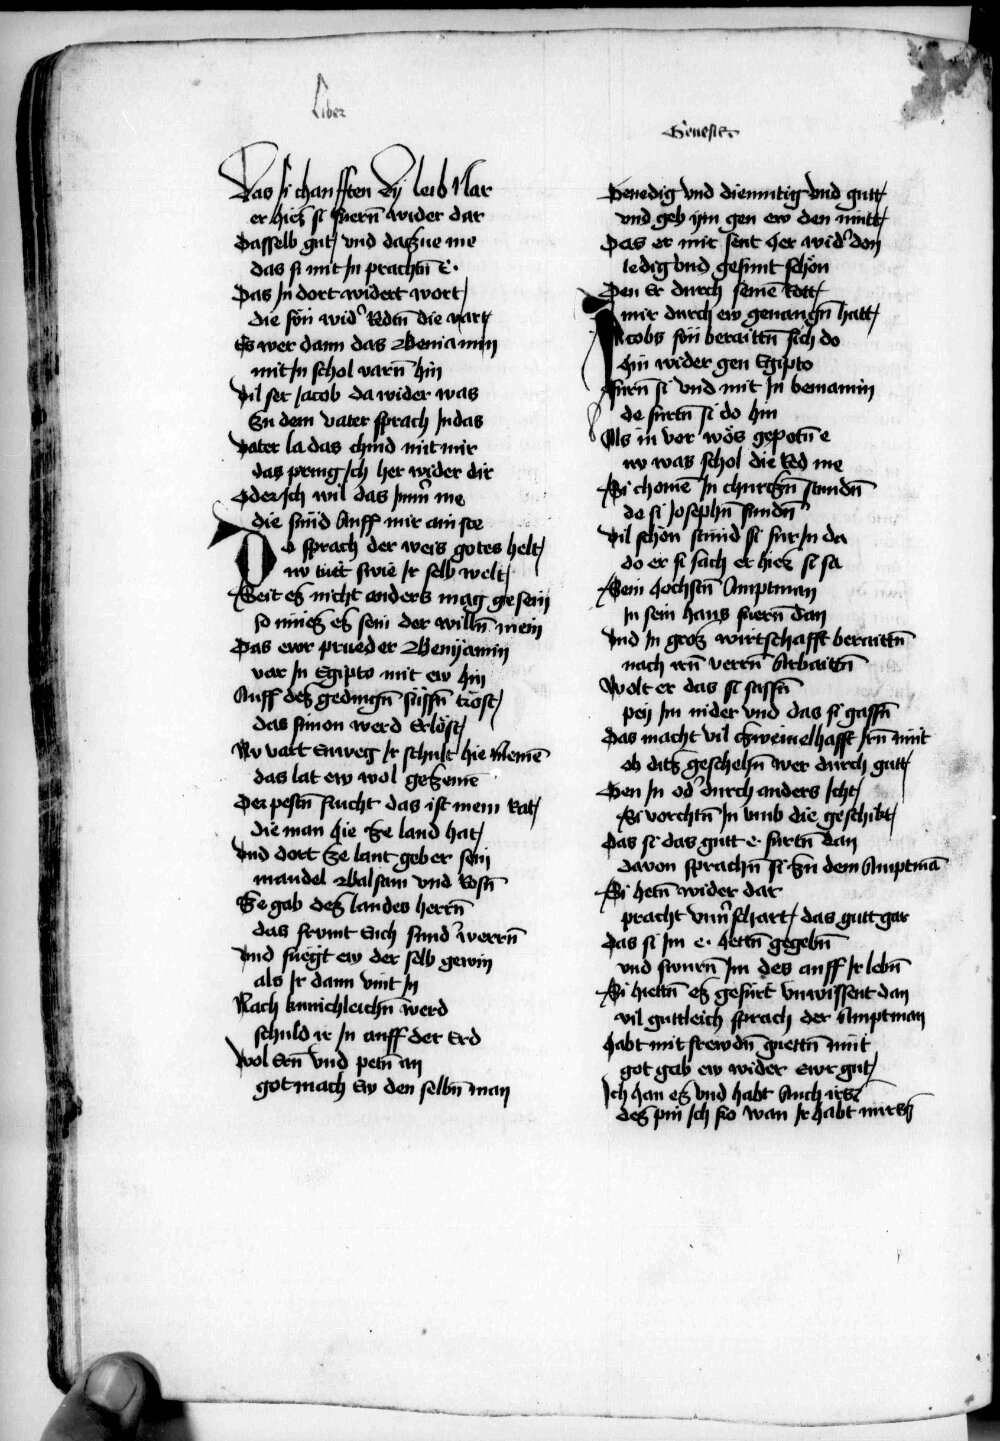 Liber
Genesis
Das si chaufften Dy leib Nar
er hiez si fuern wider dar
Dasselb gut vnd daczue me
das si mit In prachtn̄ E.
Das In dort widert wort
die sön wid' Redtn̄ die vart
Es wer dann das Beniamin
mit In schol varn̄ hin
Vil ser Jacob da wider was
Zu dem vater sprach Judas
Vater la das chind mit mir
das pring Ich her wider dir
Oder Ich wil das Im̄m̄ me
die sünd Auff mir ain ste
Do sprach der weis gotes helt
nv tuet swie Ir selb welt
Seit ez nicht anders mag gesein
so müez ez sein der willn̄ mein
Das ewr prueder Beniyamin
var In Egipto mit ew hin
Auff dez gedingn̄ süssn̄ trost
das simon werd Erlöst
Nv vart Enweg Ir schult hie Nemē
das lat ew wol gezemē
Der pestn̄ frucht das ist mein Rat
die man hie Ze land hat
Vnd dort Ze lant geber sein
mandel Balsam vnd Rosn̄
Ze gab dez landes herrn̄
das frvmt Eich sund' werrn̄
Vnd fuegt ew der selb gewin
als Ir dann vint In
Nach kunichleichn̄ werd
schuld ir In auff der Erd
Wol Ern̄ vnd petn̄ an
got mach Ew den selbn̄ man
Genedig vnd diemutig vnd gutt
vnd geb ym gen ew den mutt
Das er mir sent her wid' den
ledig vnd gesunt schon
Den Er durch seinē Rott
mir durch ew geuangn̄ hatt
Jacobs sön beraittn̄ sich do
hin wider gen Egipto
fuern̄ si vnd mit In beniamin
de furtn̄ si do hin
Als in vor wös gepotn̄ e
nv was schol die Red me
Si chomē In churczn̄ stundn̄
de si Josephn̄ fundn̄
Vil schön stuind si für In da
do er si sach er hiez si sa
Sein hochstn̄ Amptman
In sein haus fuern̄ dan
Vnd In groz wirtschafft beraittn̄
nach irn̄ verrn̄ Arbaittn̄
Wolt er das si sassn̄
pey Im nider vnd das si gassn̄
Das macht vil czweiuelhafft Irn̄ müt
ob ditz geschehn̄ wer durch gutt
Gen In od' durch anders Icht
Si vorchtn̄ In vmb die geschiht
Das si das gutt e furtn̄ dan
davon sprachn̄ si zu dem Amptmā
Si hetn̄ wider dar
pracht vnu'schart das gutt gar
Das si Im e. hettn̄ gegebn̄
vnd swurn̄ Im des auff Ir lebn̄
Si hiettn̄ ez gefürt vnwissent dan
vil guttleich sprach der Amptman
Habt mit frewdn̄ guettn̄ müt
got gab ew wider ewr gut
Ich han ez vnd habt Auch
dez pin Ich fro wan Ir habt